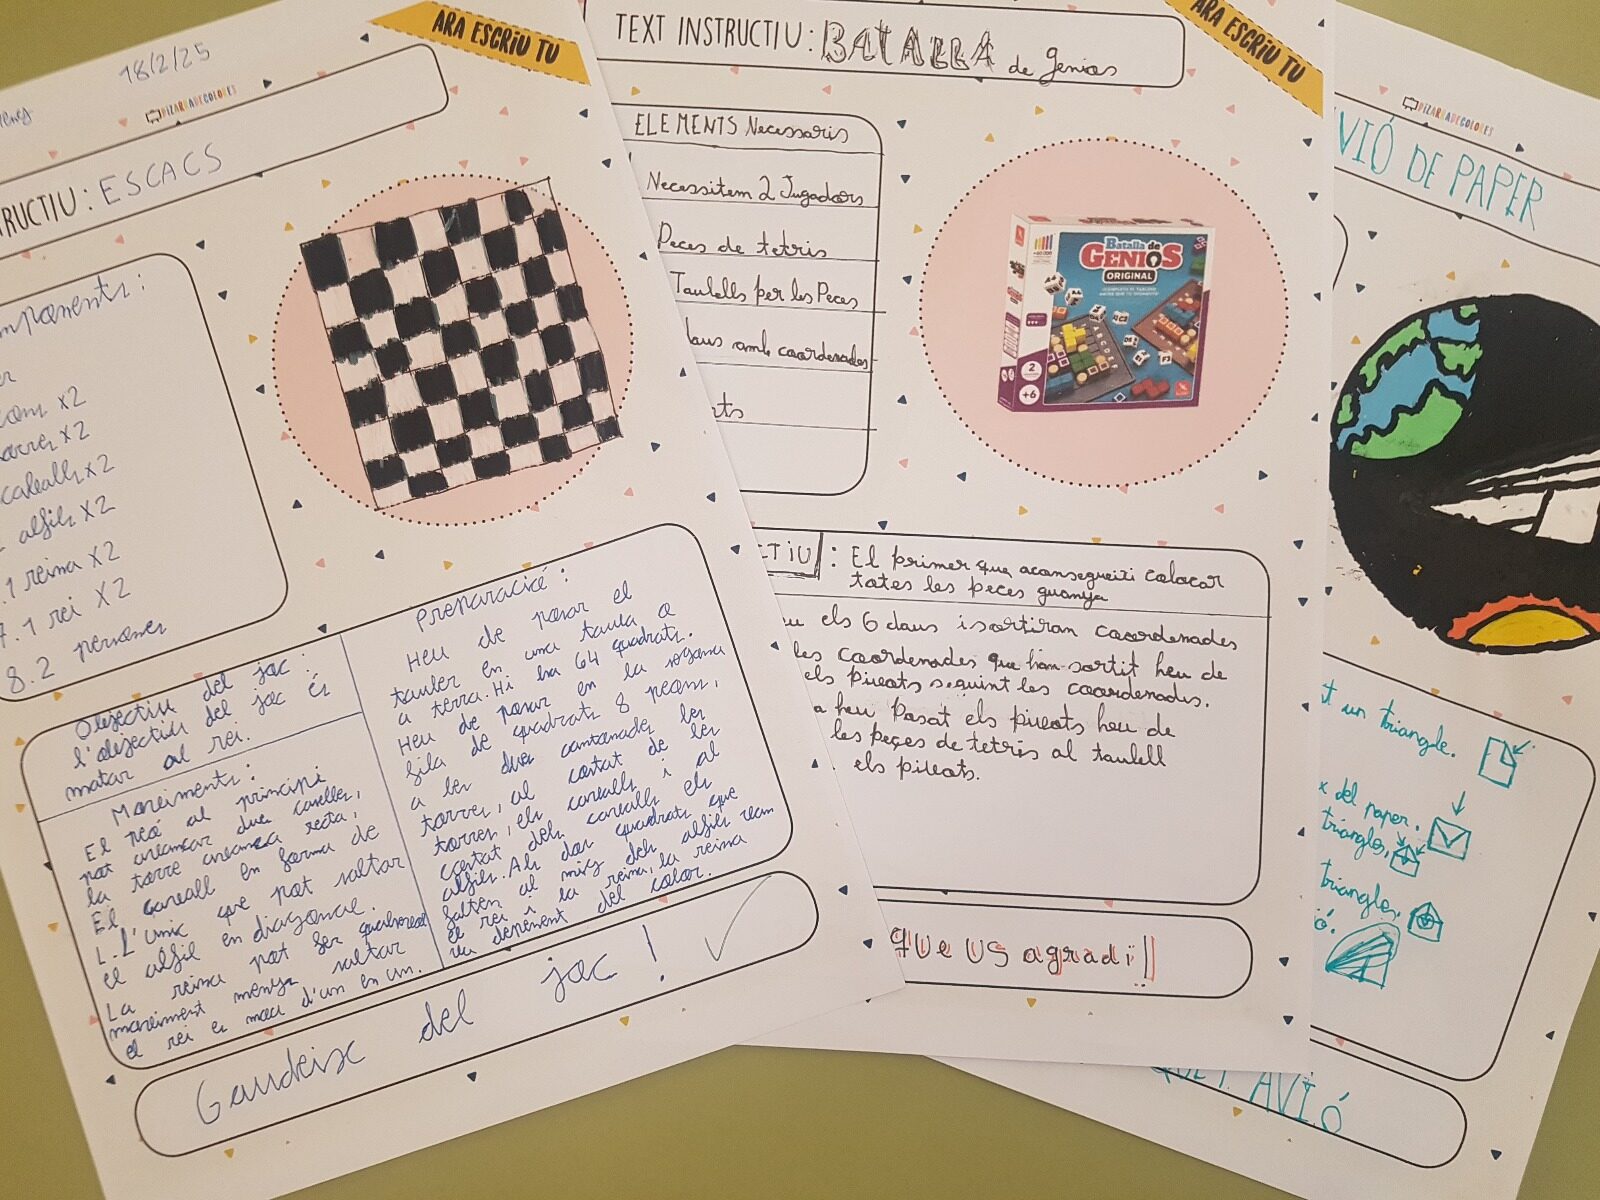 18/2/25
PIZARRADECOLORES
ARA ESCRIU TU
RUCTIU: ESCACS
mponents:
x2
x2
cavalls x2
alfils x2
1 reina x2
7. 1 rei x2
8. 2 persones
Objectiu del joc:
l'objectiu del joc és
matar al rei.
Moviments:
El peó al principi
pot avançar dues caselles,
la torre avança recta,
El cavall en forma de
L. L'únic que pot saltar
el alfil en diagonal.
La reina pot fer qualsevol
moviment menys saltar
el rei es mou d'un en un.
Preparació:
Heu de posar el
tauler en una taula o
a terra. Hi ha 64 quadrats.
Heu de posar en la segona
fila de quadrats 8 peons,
a les dues cantonades les
torres, al costat de les
torres, els cavalls i al
costat dels cavalls els
alfils. Als dos quadrats que
falten al mig dels alfils van
el rei i la reina, la reina
va depenent del color.
Gaudeix del joc!
TEXT INSTRUCTIU: BATALLA de Genios
ARA ESCRIU TU
ELEMENTS Necessaris
Necessitem 2 Jugadors
Peces de tetris
Taulells per les Peces
daus amb coordenades
Batalla de
GENIOS
ORIGINAL
2
+6
CTIU: El primer que aconsegueixi colocar
totes les peces guanya
els 6 daus i sortiran coordenades
les coordenades que han sortit heu de
els pivots seguint les coordenades.
heu Posat els pivots heu de
les peçes de tetris al taulell
els pivots.
que us agradi!!
PIZARRADECOLORES
VIÓ DE PAPER
t un triangle.
x del paper.
triangles,
triangles,
ó.
AVIÓ